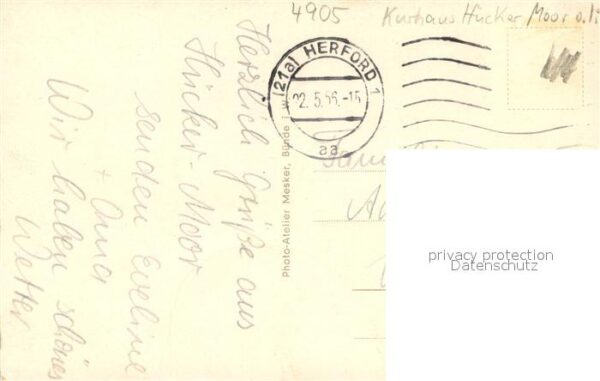 4905
Kurhaus Hücker Moor
(21a) HERFORD 1
22.5.56.-15
aa
Herzlich Grüße aus
Hücker-Moor
senden Eveline
+ Oma
Wir haben schönes
Wetter
Photo-Atelier Mesker, Bünde i. W.
privacy protection
Datenschutz